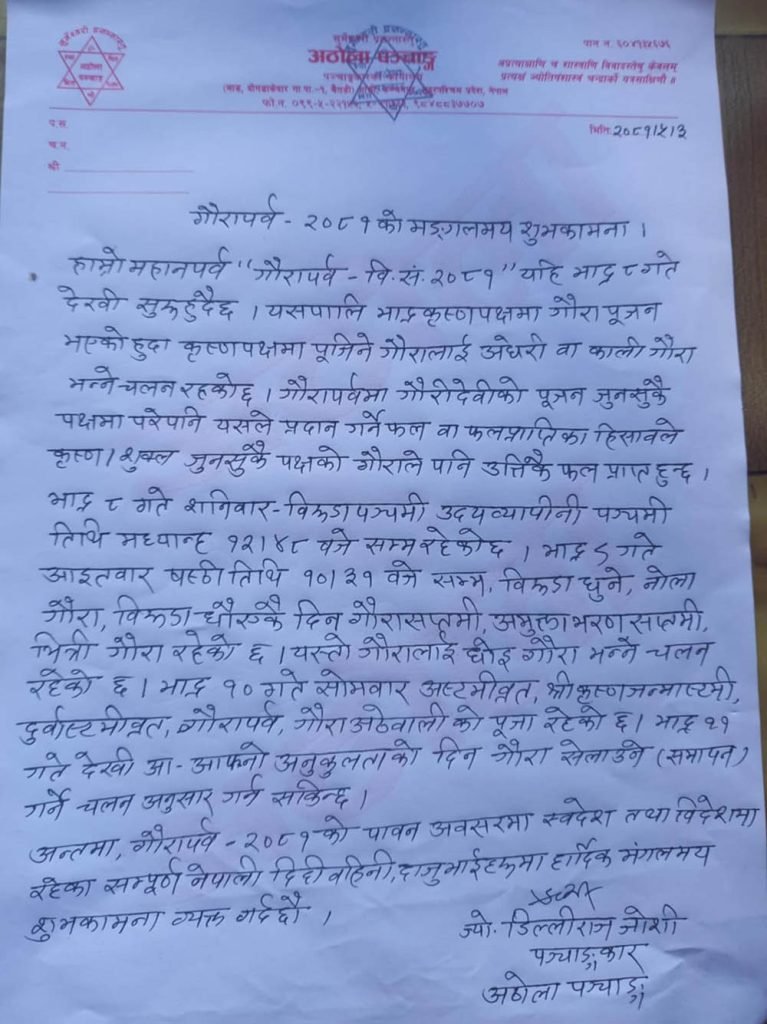 सुर्मेश्वरी प्रसन्नास्तु
अठोला पञ्चाङ्ग
अठोला पञ्चाङ्ग
पान नं.
अप्रत्यक्षाणि च शास्त्राणि विवादस्तेषु केवलम्
प्रत्यक्षं ज्योतिषशास्त्रं चन्द्रार्कौ यत्रसाक्षिणौ ॥
नेपाल
फोन.
प.स.
च.न.
श्री
मिति: २०८१।५।३
गौरापर्व - २०८१ को मङ्गलमय शुभकामना ।
हाम्रो महानपर्व "गौरापर्व - वि.सं. २०८१" यहि भाद्र ८ गते
देखी सुरुहुदैछ । यसपालि भाद्र कृष्णपक्षमा गौरा पूजन
भएको हुदा कृष्णपक्षमा पूजिने गौरालाई अंधेरी वा काली गौरा
भन्ने चलन रहकोछ । गौरापर्वमा गौरीदेवीको पूजन जुनसुकै
पक्षमा परेपनि यसले प्रदान गर्ने फल वा फलप्राप्तिका हिसावले
कृष्ण। शुक्ल जुनसुकै पक्षको गौराले पनि उत्तिकै फल प्राप्त हुन्छ ।
भाद्र ८ गते शनिवार - विरुडा पञ्चमी उदयव्यापीनी पञ्चमी
तिथि मध्यान्ह १२।४८ वजे सम्म रहेकोछ । भाद्र ९ गते
आइतवार षष्ठी तिथि १०।३१ वजे सम्म, विरुडा धुने, नोला
गौरा, विरुडा धौएकै दिन गौरासप्तमी, अमुक्ताभरण सप्तमी,
भित्री गौरा रहेको छ । यस्तो गौरालाई धोइ गौरा भन्ने चलन
रहेको छ । भाद्र १० गते सोमवार अस्टमीव्रत, श्रीकृष्णजन्मास्टमी,
दुर्वास्टमीव्रत, गौरापर्व, गौरा अठेवाली को पूजा रहेको छ । भाद्र ११
गते देखी आ-आफ्नो अनुकुलताको दिन गौरा सेलाउने (समापन)
गर्ने चलन अनुसार गर्न सकिन्छ ।
अन्तमा, गौरापर्व - २०८१ को पावन अवसरमा स्वदेश तथा विदेशमा
रहेका सम्पूर्ण नेपाली दिदी वहिनी, दाजुभाईहरुमा हार्दिक मंगलमय
शुभकामना व्यक्त गर्दछौं ।
ज्यो. डिल्लीराज जोशी
पञ्चाङ्गकार
अठोला पञ्चाङ्ग